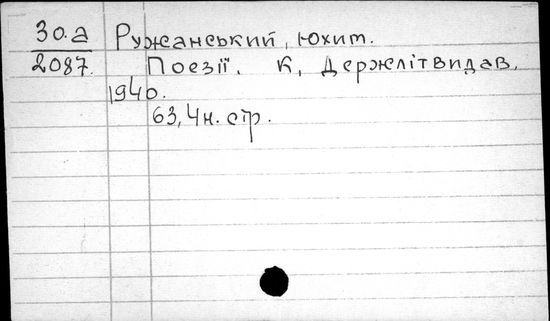 30.а Ружанський, Юхит.
2087. Поезії. К, Держлітвидав,
1940.
63,4н. стр.